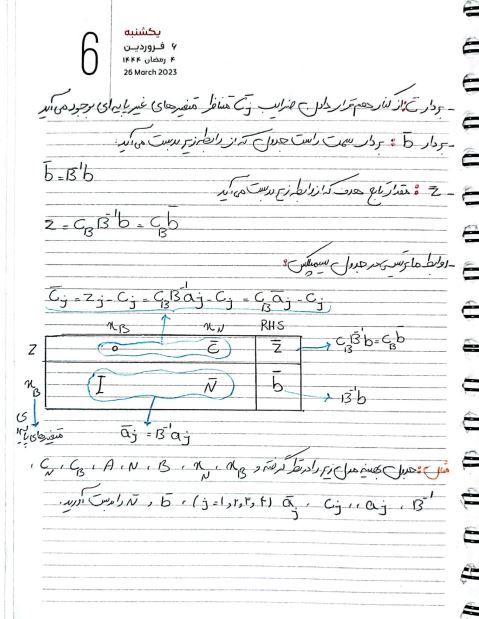 یکشنبه
6
۶ فروردین
۴ رمضان ۱۴۴۴
26 March 2023
- بردار c̄: از کنار هم قرار دادن ضرایب c̄j متناظر متغیرهای غیر پایه ای بوجود می آید
- بردار b̄ : بردار سمت راست جدول که از رابطه زیر بدست می آید.
b̄ = B⁻¹b
- z̄ : مقدار تابع هدف که از رابطه زیر بدست می آید
z = C_B B⁻¹b = C_B b̄
- روابط ماتریسی در جدول سیمپلکس:
c̄j = zj - cj = C_B B⁻¹aj - cj = C_B āj - cj
x_B x_N RHS
z 0 c̄ z̄ → C_B B⁻¹b = C_B b̄
x_B I N̄ b̄ → B⁻¹b
متغیرهای پایه ای
āj = B⁻¹aj
مثال: جدول بهینه مدل زیر را در نظر گرفته و x_B ، x_N ، B ، N ، A ، C_B ، C_N ،
B⁻¹ ، aj ، cj ، āj (j=1,2,3,4) ، b̄ و c̄ را بدست آورید.